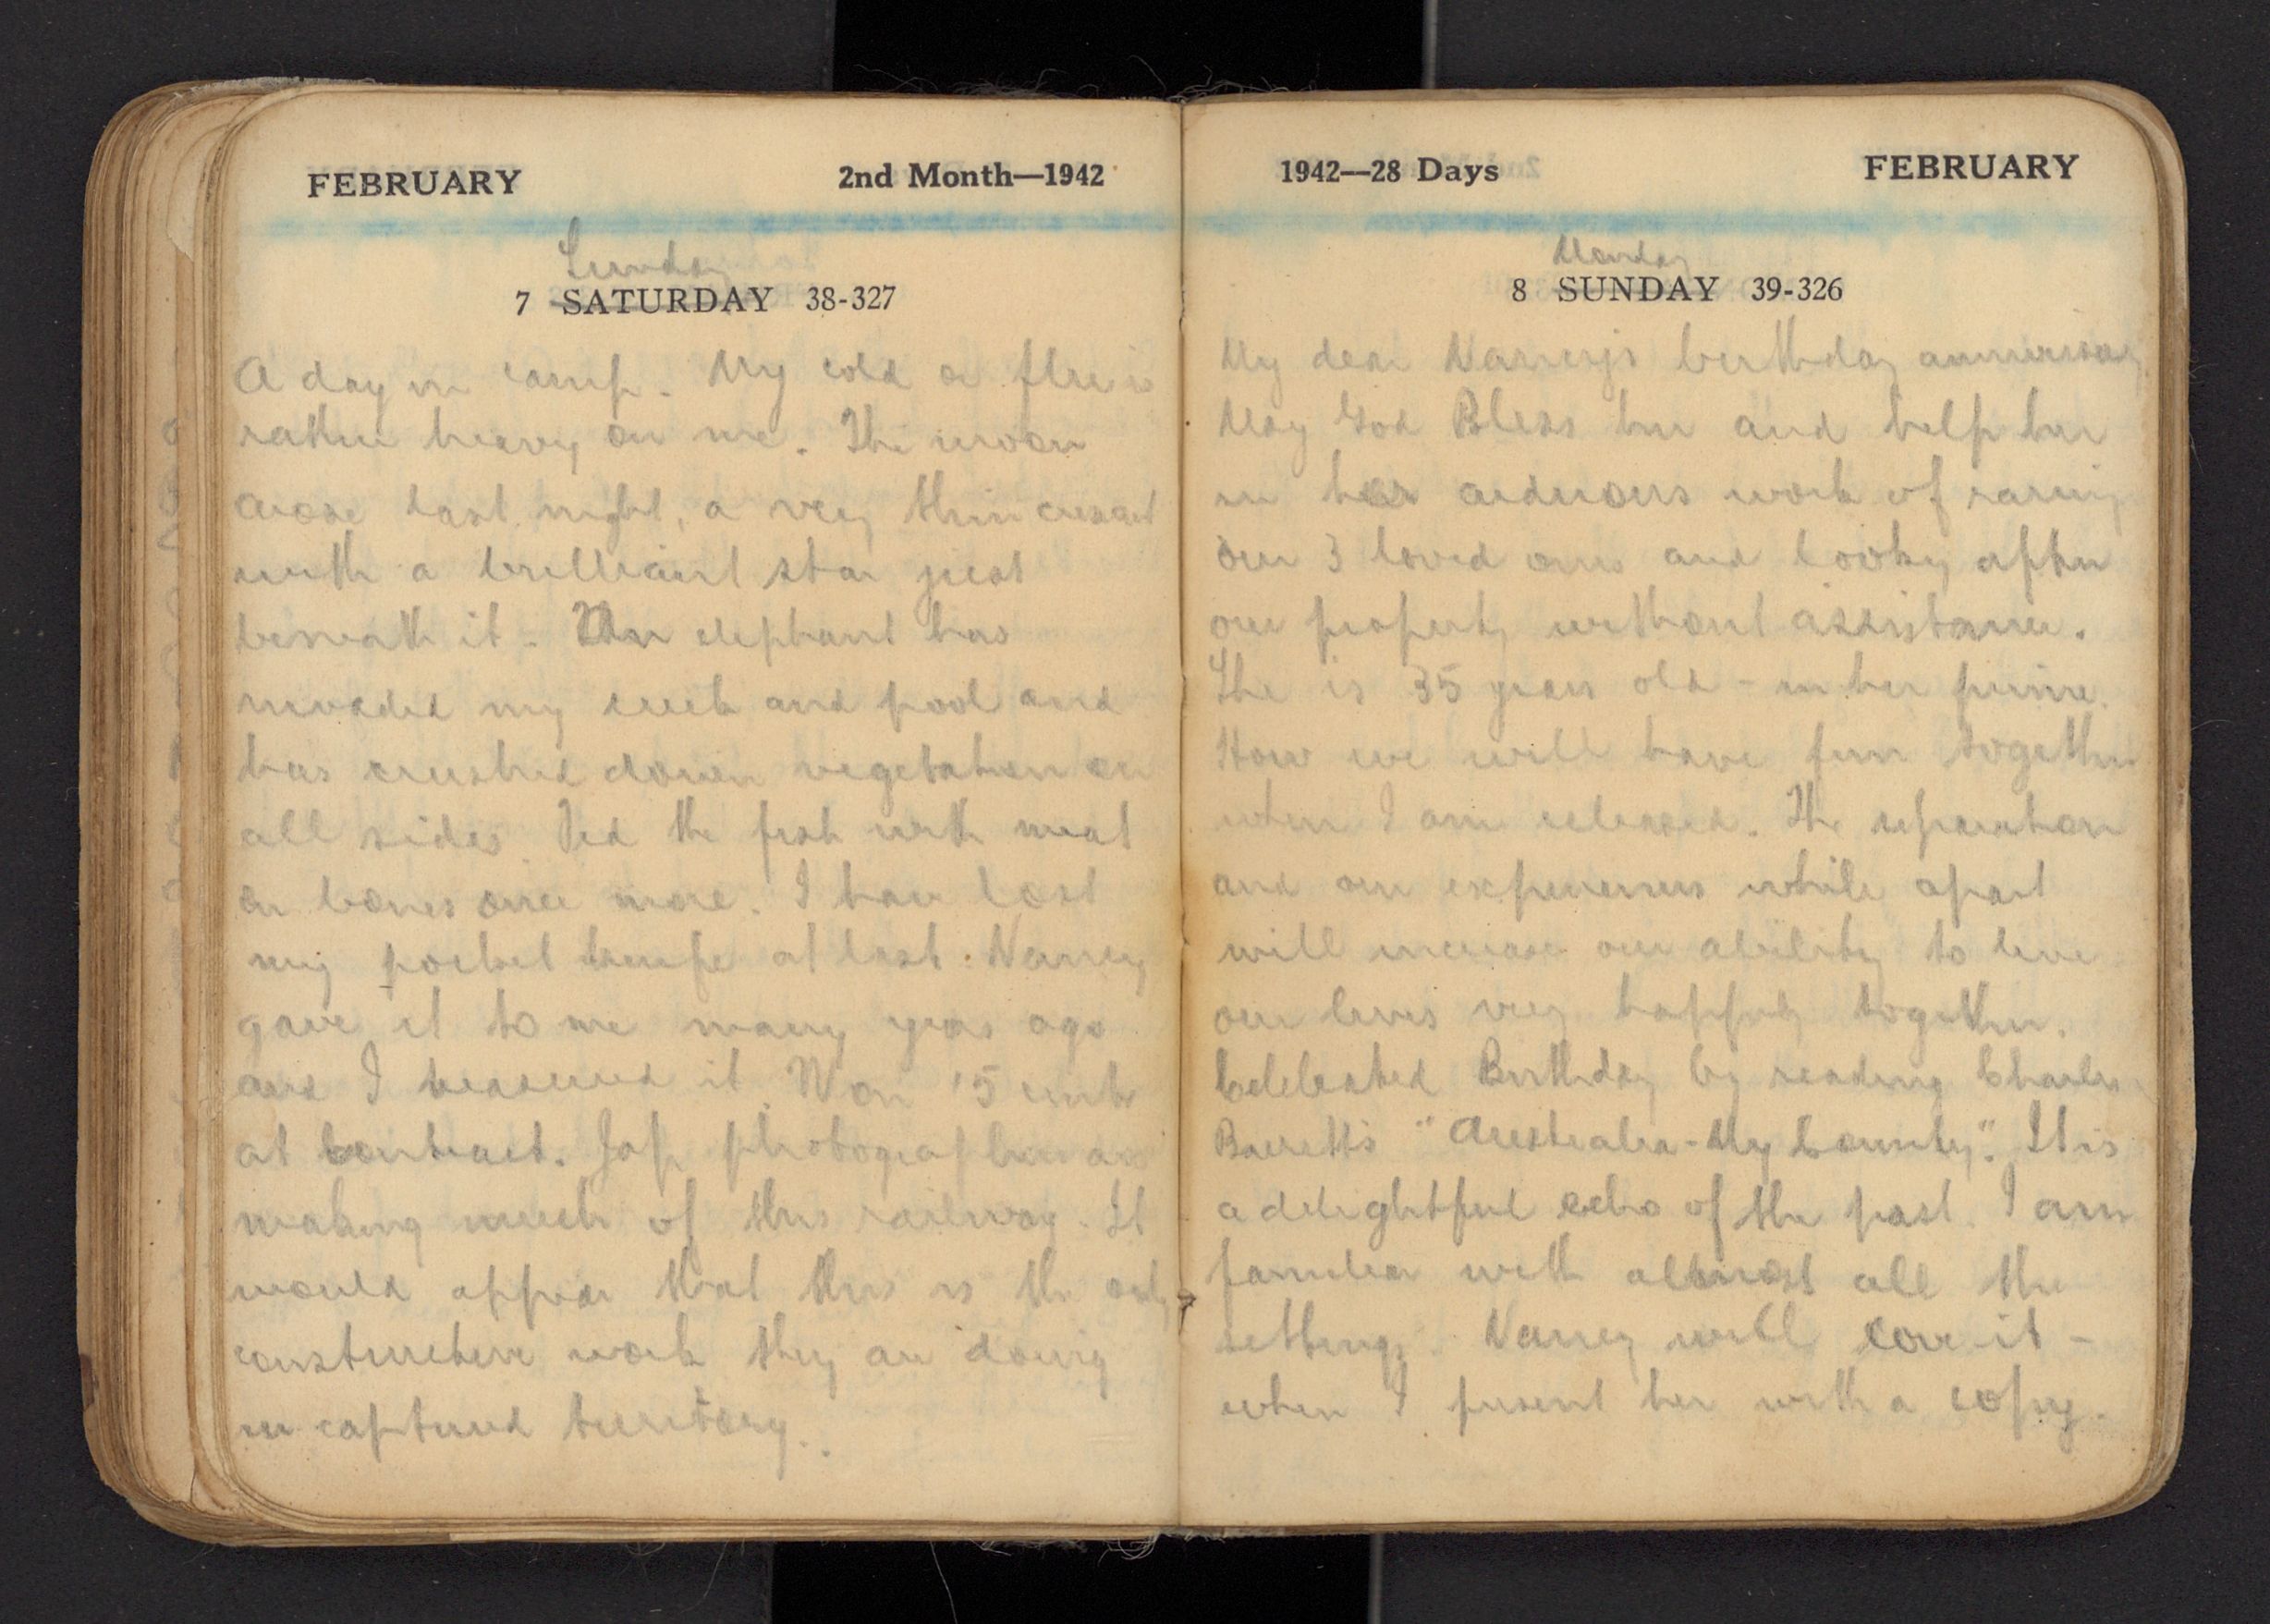 FEBRUARY 2nd Month—1942
Sunday
7 SATURDAY 38-327
A day in camp. My cold or flu is
rather heavy on me. The moon
arose last night, a very thin crescent
with a brilliant star just
beneath it. An elephant has
invaded my creek and pool and
has crushed down vegetation on
all sides. Fed the fish with meat
on bones once more. I have lost
my pocket knife at last. Nancy
gave it to me many years ago
and I treasured it. Won 15 cents
at contract. Jap photographers are
making much of this railway. It
would appear that this is the only
constructive work they are doing
in captured territory.
1942—28 Days FEBRUARY
Monday
8 SUNDAY 39-326
My dear Nancy's birthday anniversary.
May God Bless her and help her
in her arduous work of raring
our 3 loved ones and looking after
our property without assistance.
She is 35 years old - in her prime.
How we will have fun together
when I am released. The separation
and our experiences while apart
will increase our ability to live
our lives very happily together.
Celebrated Birthday by reading Charles
Barrett's "Australia - My Country". It is
a delightful echo of the past. I am
familiar with almost all the
settings. Nancy will love it -
when I present her with a copy.